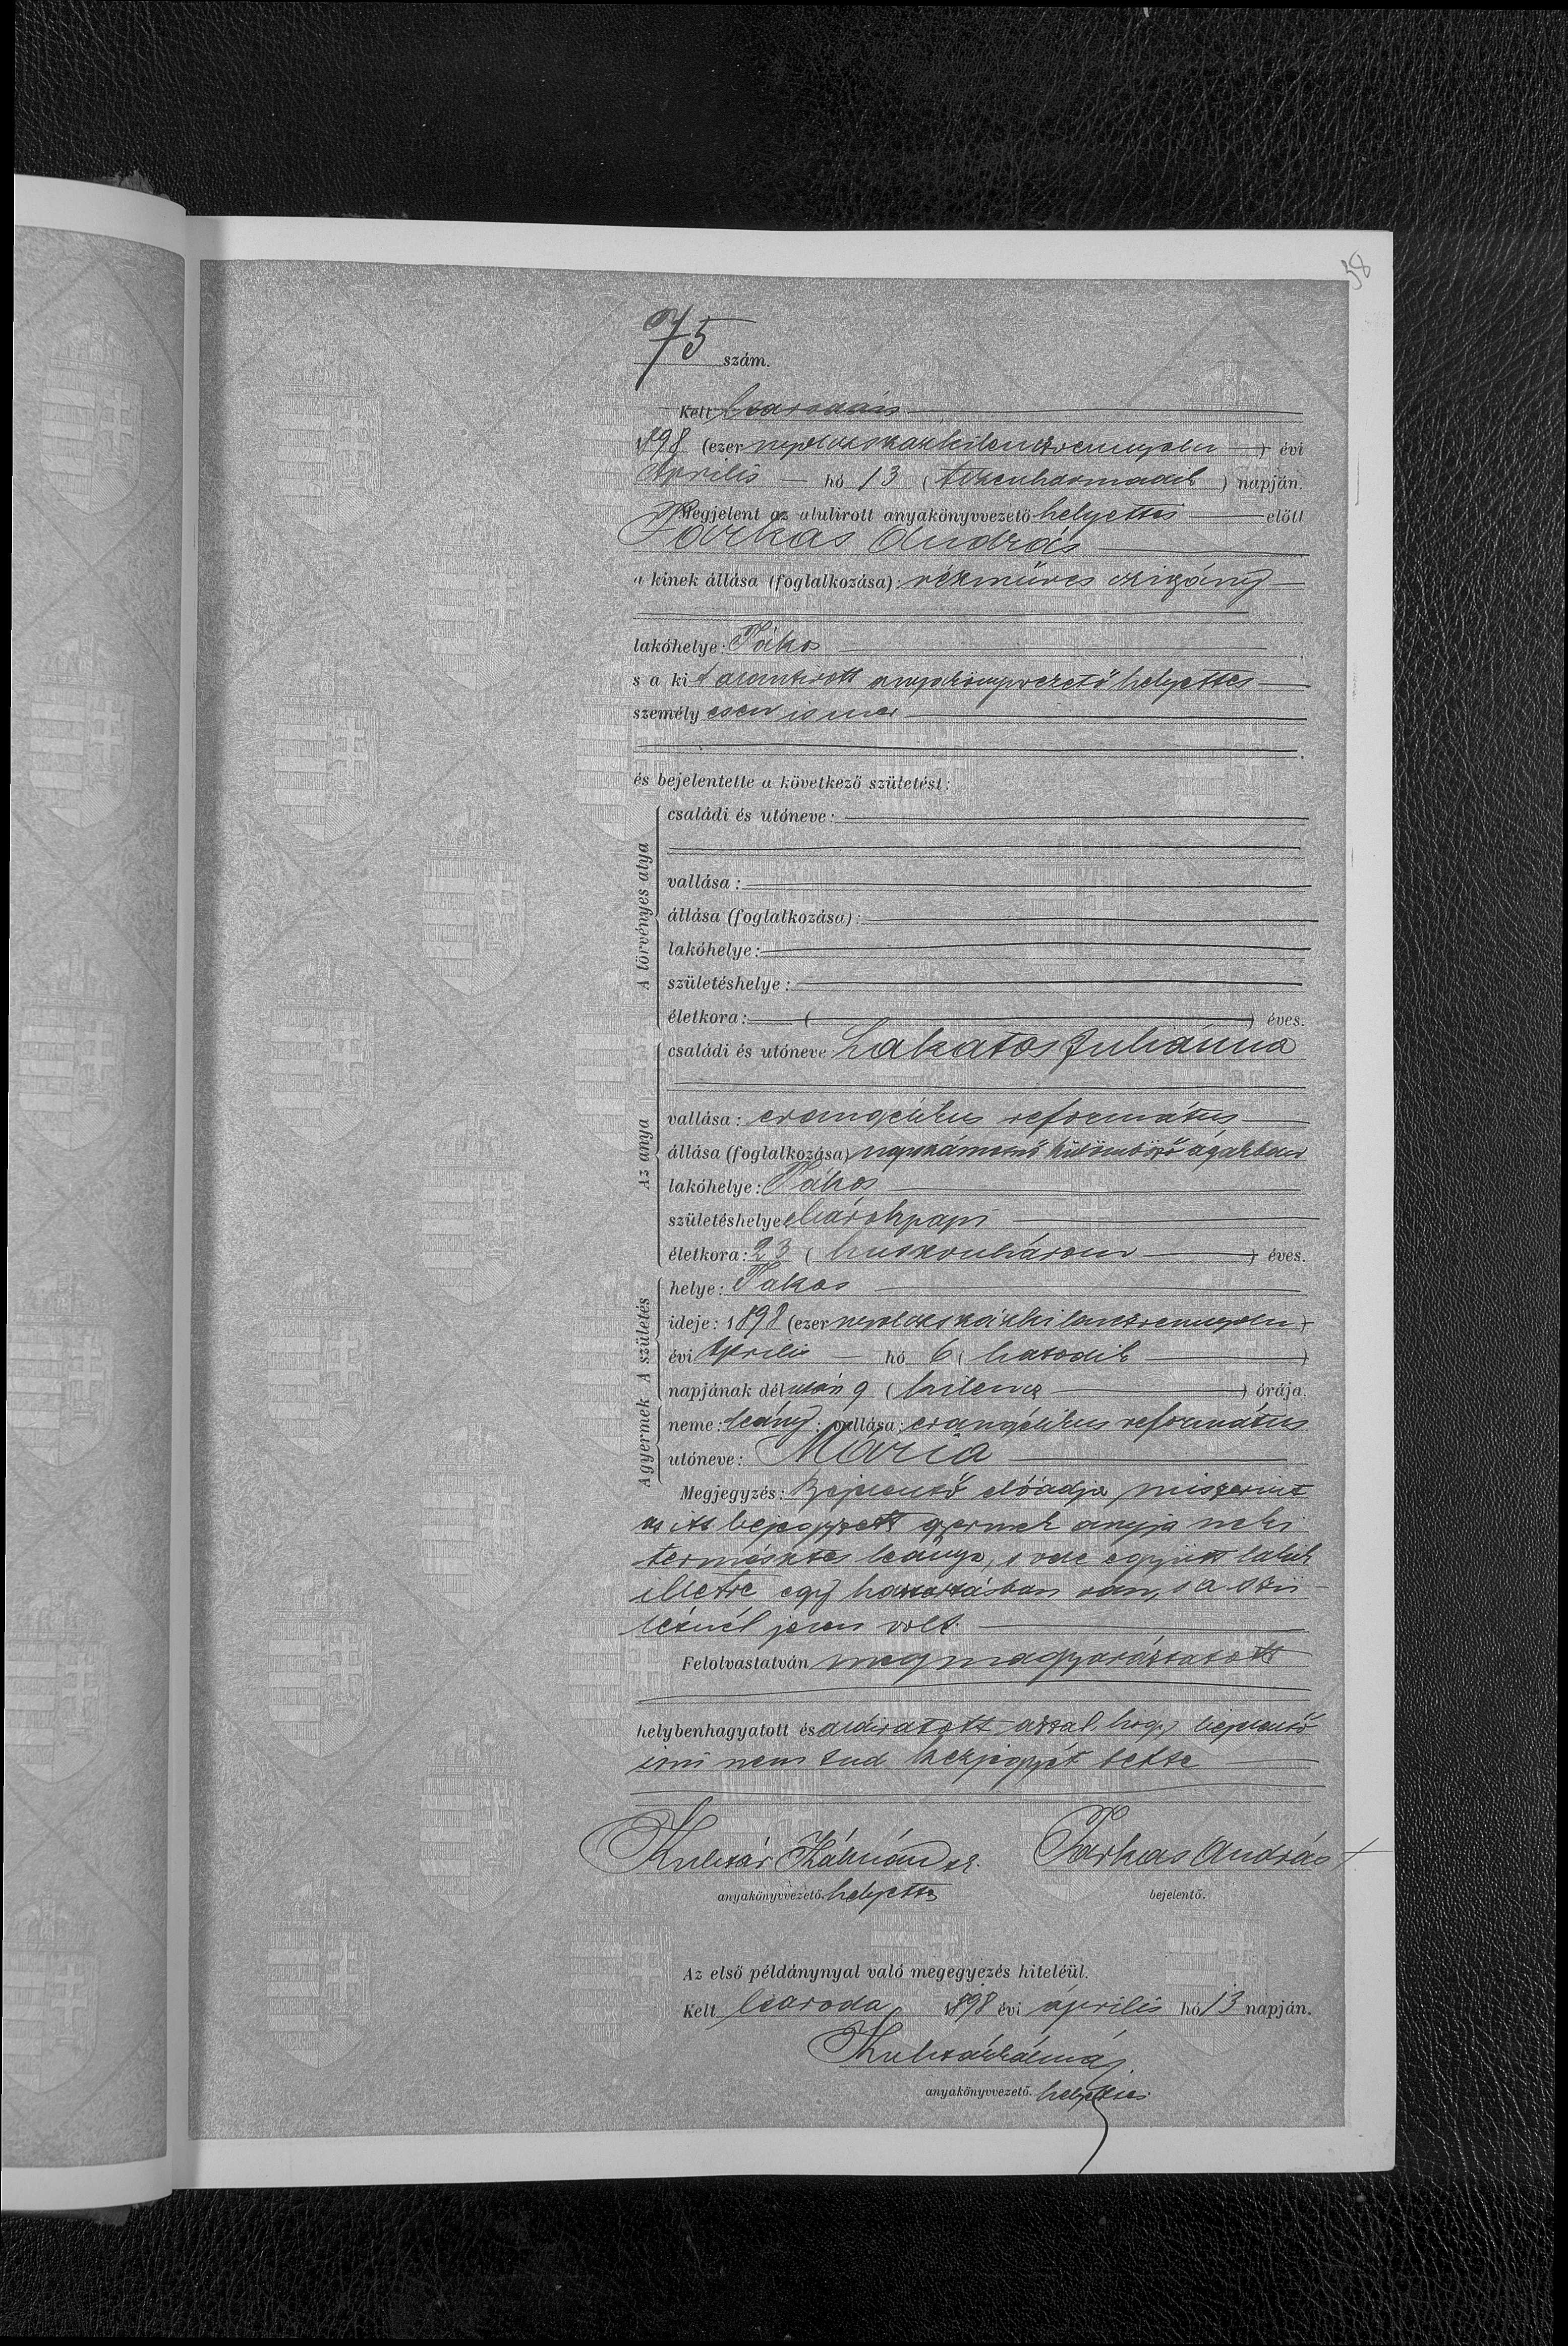 38
75 szám.
Kelt Csarodán
1898 (ezer nyolczszázkilenczvennyolcz) évi
április hó 13 (tizenharmadik) napján.
Megjelent az alulirott anyakönyvvezető helyettes előtt
Farkas András
a kinek állása (foglalkozása): rézmüves czigány
lakóhelye: Tákos
s a kit alantirott anyakönyvvezető helyettes
személyesen ismer
és bejelentette a következő születést:
A törvényes atya
családi és utóneve:
vallása:
állása (foglalkozása):
lakóhelye:
születéshelye:
életkora: ( ) éves.
Az anya
családi és utóneve: Lakatos Juliánna
vallása: evangélikus református
állása (foglalkozása) napszámosnő különböző ágakban
lakóhelye: Tákos
születéshelye Márokpapi
életkora: 23 (huszonhárom) éves.
A születés
helye: Tákos
ideje: 1898 (ezer nyolczszázkilenczvennyolcz)
évi április hó 6 (hatodik)
napjának délután 9 (kilencz) órája.
A gyermek
neme: leány; vallása: evangélikus református
utóneve: Mária
Megjegyzés: Bejelentő előadja miszerint
az itt bejegyzett gyermek anyja neki
természetes leánya, s vele együtt lakik
illetve egy háztartásban van, s a szü-
lésnél jelen volt.
Felolvastatván megmagyaráztatott
helybenhagyatott és aláiratott azzal, hogy bejelentő
irni nem tud kézjegyét tette
Kulcsár Kálmán sk. Farkas András +
anyakönyvvezető. helyettes bejelentő.
Az első példánynyal való megegyezés hiteléül.
Kelt Csaroda, 1898 évi április hó 13 napján.
Kulcsár Kálmán
anyakönyvvezető. helyettes